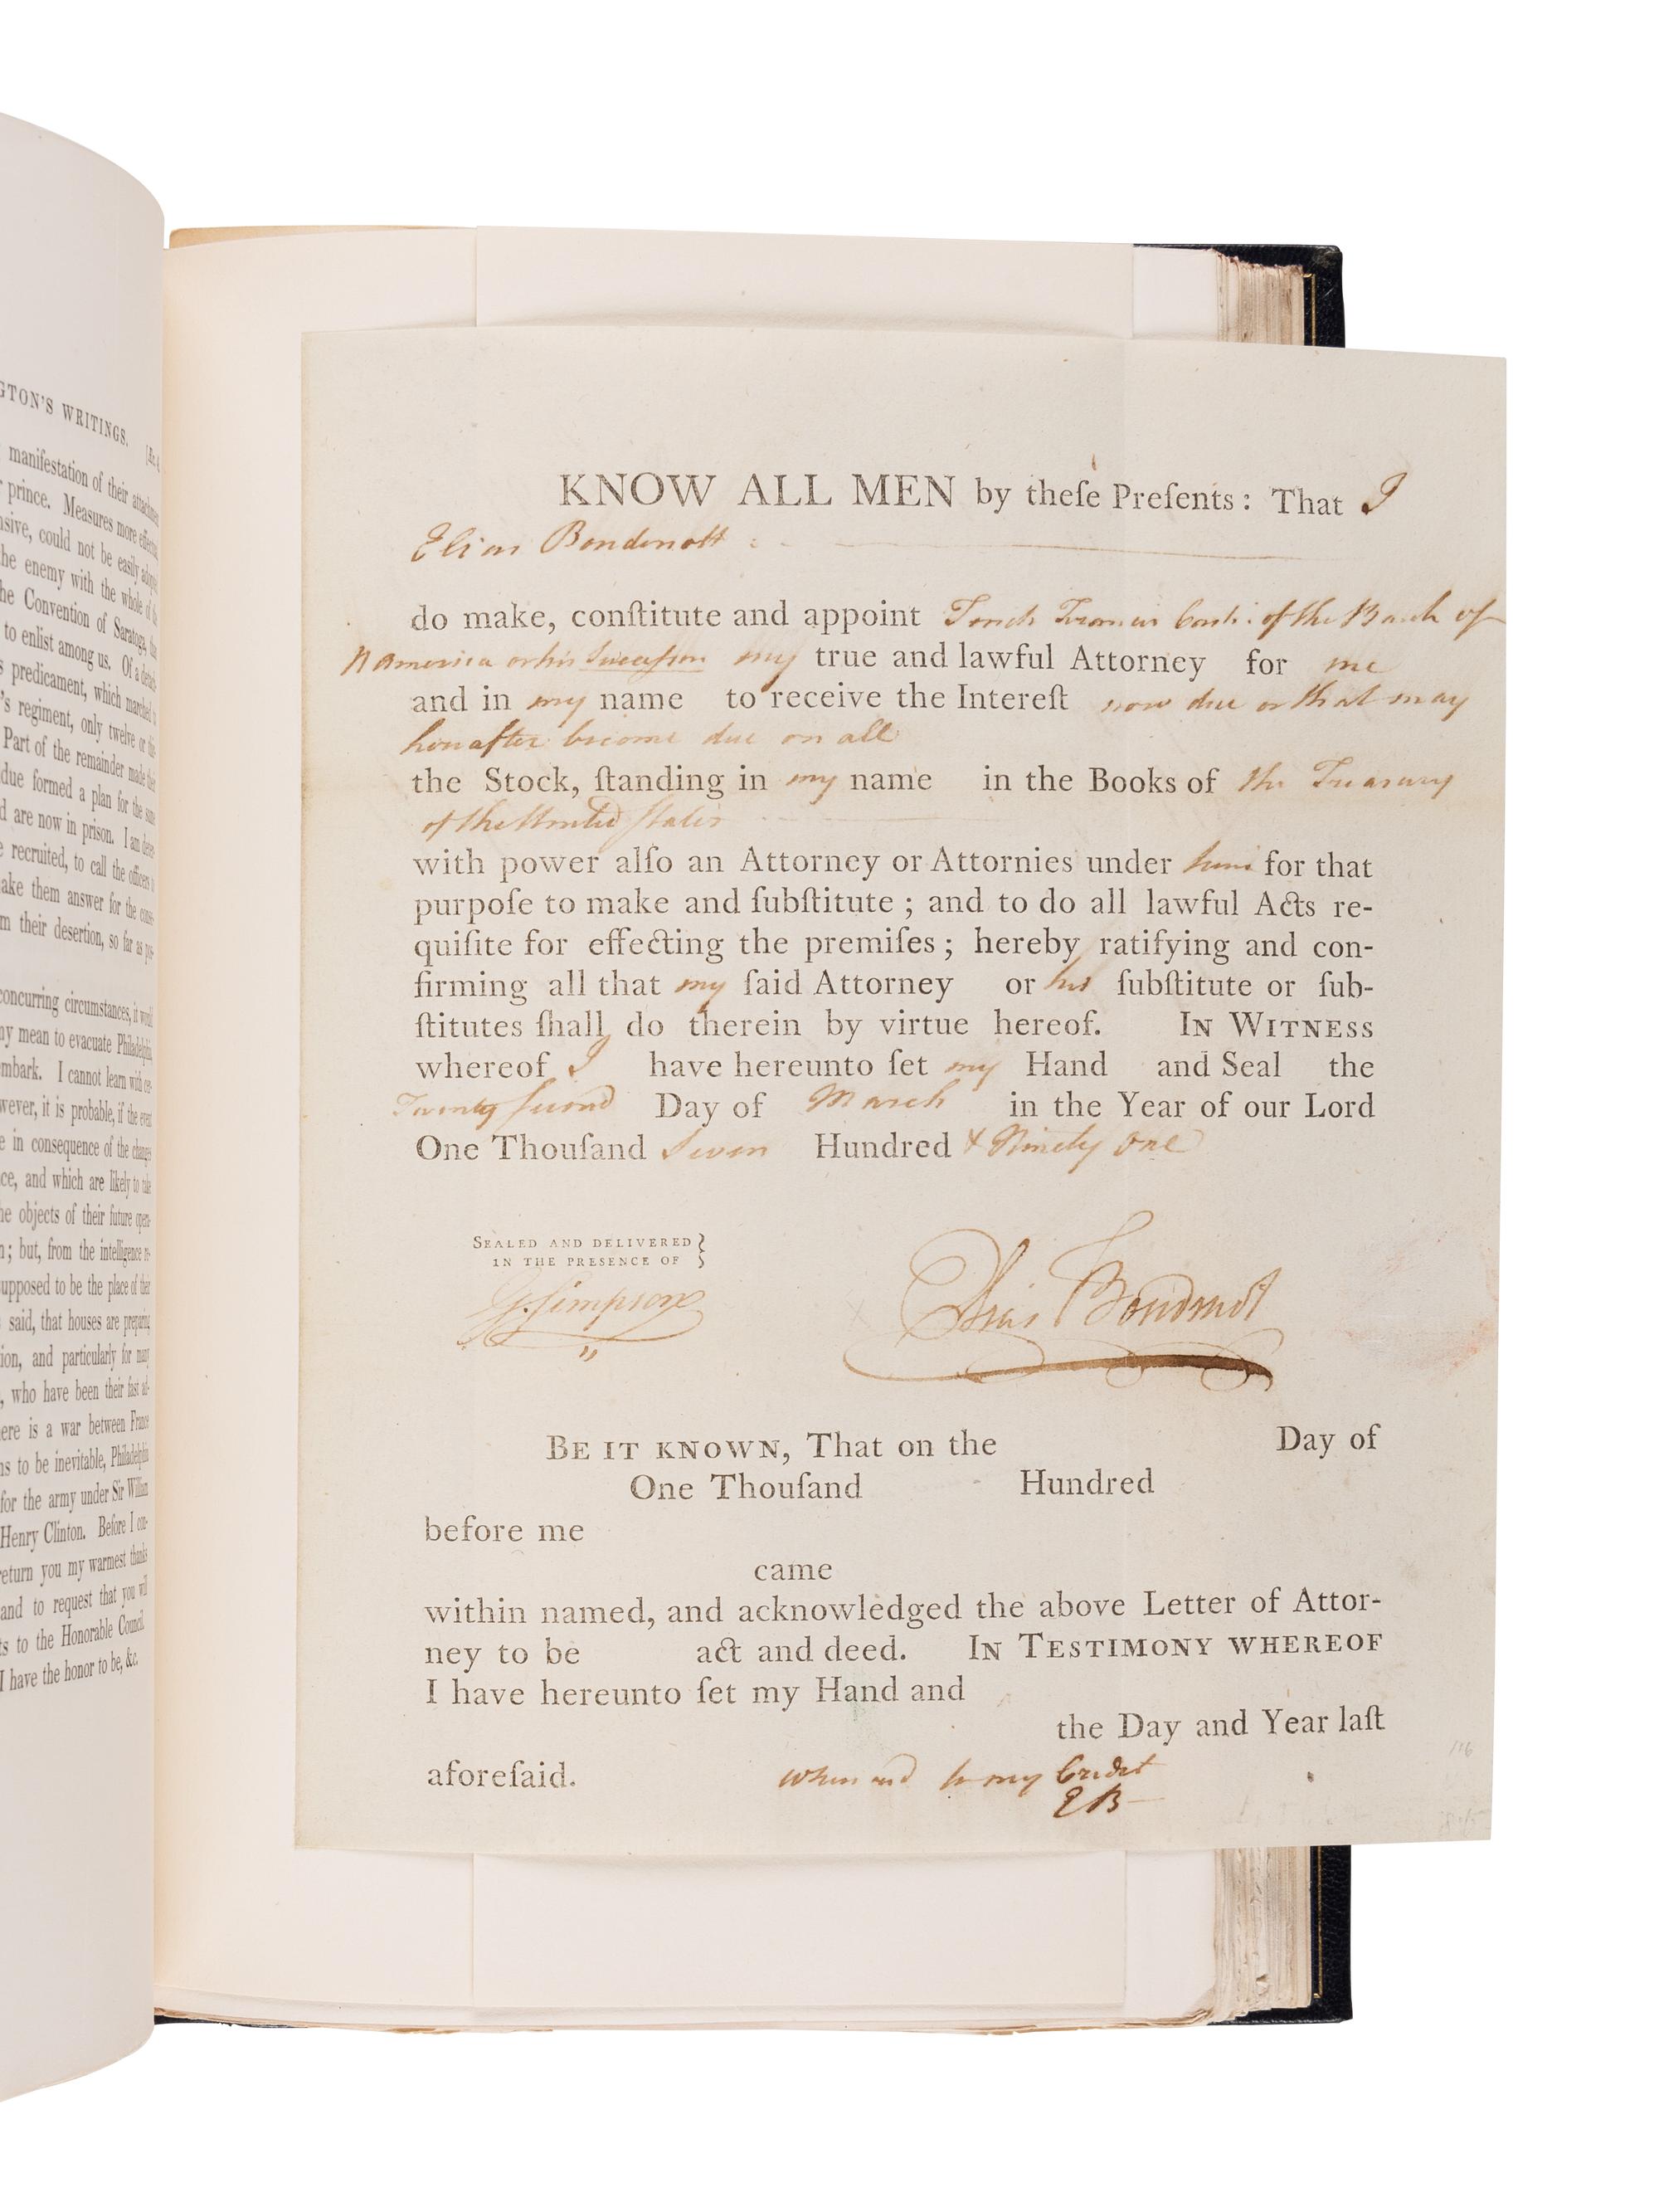 GTON'S WRITINGS.
manifestation of their attachment
prince. Measures more effectual,
nsive, could not be easily adopted
the enemy with the whole of the
he Convention of Saratoga, that
to enlist among us. Of a detach-
s predicament, which marched
's regiment, only twelve or
Part of the remainder made their
due formed a plan for the same
d are now in prison. I am
e recruited, to call the officers
ake them answer for the conse-
m their desertion, so far as
concurring circumstances, it would
my mean to evacuate Philadelphia
embark. I cannot learn with
wever, it is probable, if the event
e in consequence of the changes
ce, and which are likely to take
he objects of their future opera-
n; but, from the intelligence
supposed to be the place of their
said, that houses are preparing
tion, and particularly for many
, who have been their fast
ere is a war between France
ns to be inevitable, Philadelphia
for the army under Sir William
Henry Clinton. Before I con-
return you my warmest thanks
and to request that you will
ts to the Honorable Council.
I have the honor to be, &c.
KNOW ALL MEN by theſe Preſents: That I
Elias Boudinott
do make, conſtitute and appoint Tench Francis Cash: of the Bank of
N America or his Succeſsor my true and lawful Attorney for me
and in my name to receive the Intereſt now due or that may
hereafter become due on all
the Stock, ſtanding in my name in the Books of the Treasury
of the United States
with power alſo an Attorney or Attornies under him for that
purpoſe to make and ſubſtitute; and to do all lawful Acts re-
quiſite for effecting the premiſes; hereby ratifying and con-
firming all that my ſaid Attorney or his ſubſtitute or ſub-
ſtitutes ſhall do therein by virtue hereof. IN WITNESS
whereof I have hereunto ſet my Hand and Seal the
Twenty second Day of March in the Year of our Lord
One Thouſand Seven Hundred & Ninety One
SEALED AND DELIVERED
IN THE PRESENCE OF
G. Simpson
Elias Boudinot
BE IT KNOWN, That on the Day of
One Thouſand Hundred
before me
came
within named, and acknowledged the above Letter of Attor-
ney to be act and deed. IN TESTIMONY WHEREOF
I have hereunto ſet my Hand and
the Day and Year laſt
aforeſaid.
to my Credit
EB
116